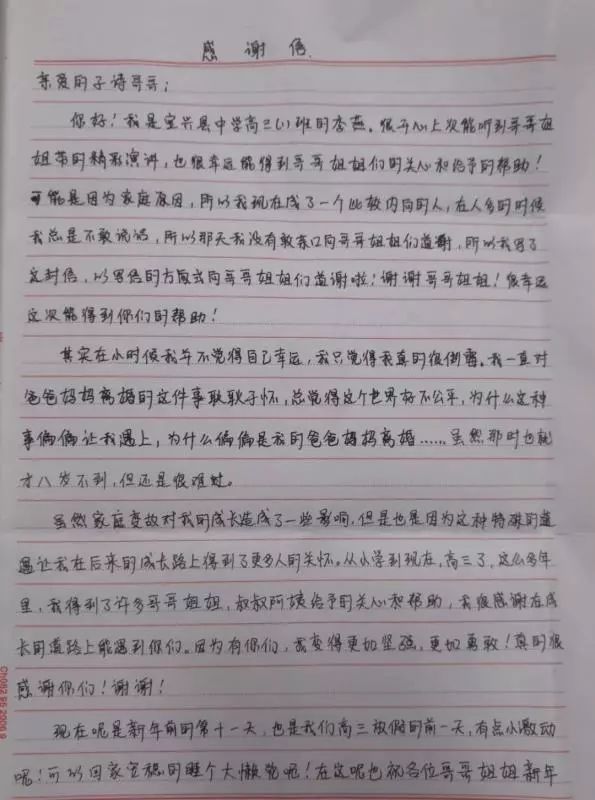 感谢信.
亲爱的子诗哥哥：
你好！我是宝兴县中学高三(1)班的李燕。很开心上次能听到哥哥姐
姐带的精彩演讲，也很幸运能得到哥哥姐姐们的关心和给予的帮助！
可能是因为家庭原因，所以我现在成了一个比较内向的人，在人多的时候
我总是不敢说话，所以那天我没有敢亲口向哥哥姐姐们道谢，所以我写了
这封信，以写信的方式向哥哥姐姐们道谢啦！谢谢哥哥姐姐！很幸运
这次能得到你们的帮助！
其实在小时候我并不觉得自己幸运，我只觉得我真的很倒霉。我一直对
爸爸妈妈离婚的这件事耿耿于怀，总觉得这个世界好不公平，为什么这种
事偏偏让我遇上，为什么偏偏是我的爸爸妈妈离婚……虽然那时也就
才八岁不到，但还是很难过。
虽然家庭变故对我的成长造成了一些影响，但是也是因为这种特殊的遭
遇让我在后来的成长路上得到了更多人的关怀。从小学到现在，高三了，这么多年
里，我得到了许多哥哥姐姐，叔叔阿姨给予的关心和帮助，我很感谢在成
长的道路上能遇到你们。因为有你们，我变得更加坚强，更加勇敢！真的很
感谢你们！谢谢！
现在呢是新年前的第十一天，也是我们高三放假的前一天，有点小激动
呢！可以回家安稳的睡个大懒觉呢！在这呢也祝各位哥哥姐姐新年
Ch082 95 2006 9